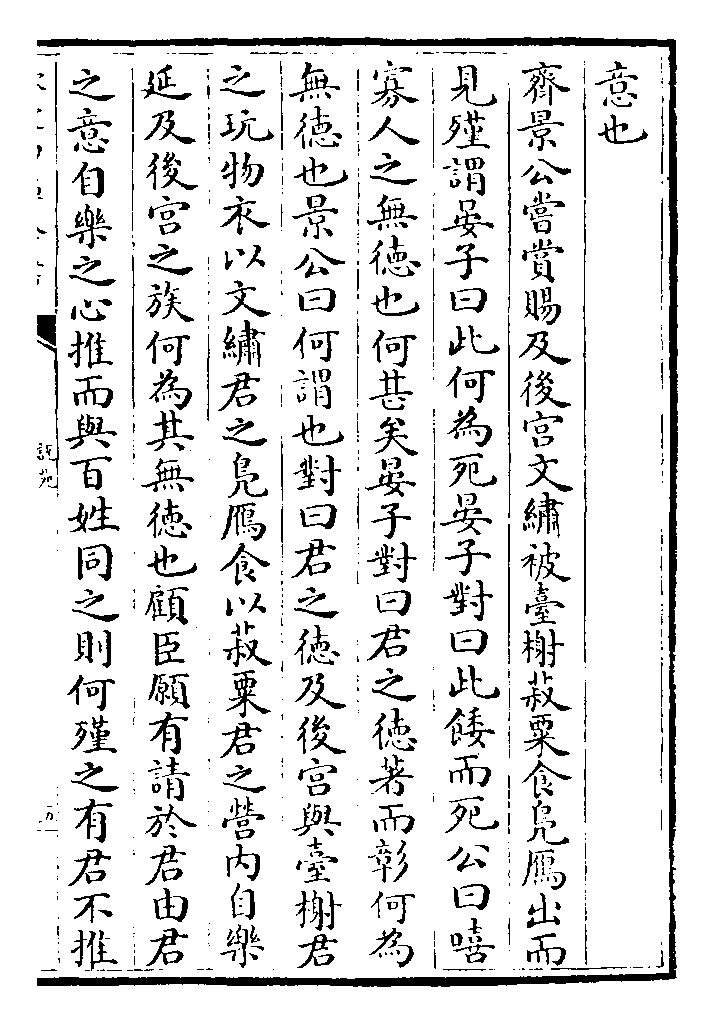 意也
齊景公嘗賞賜及後宮文繡被臺榭菽粟食鳧鴈出而
見殣謂晏子曰此何為死晏子對曰此餧而死公曰嘻
寡人之無徳也何甚矣晏子對曰君之徳著而彰何為
無徳也景公曰何謂也對曰君之徳及後宮與臺榭君
之玩物衣以文繡君之鳧鴈食以菽粟君之營内自樂
延及後宮之族何為其無徳也顧臣願有請於君由君
之意自樂之心推而與百姓同之則何殣之有君不推
說苑